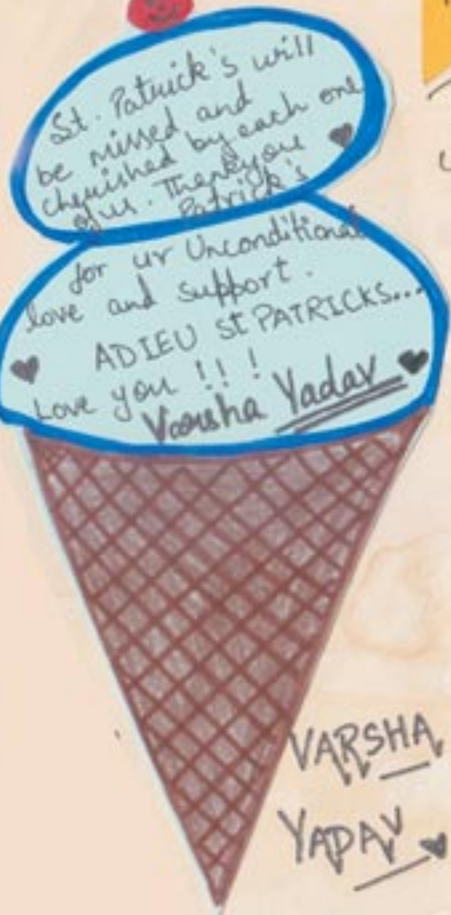 St. Patrick's will
be missed and
cherished by each one
of us. Thankyou
Patrick's
for ur Unconditional
love and support.
ADIEU St PATRICKS...
Love you !! !
Varsha Yadav
VARSHA
YADAV